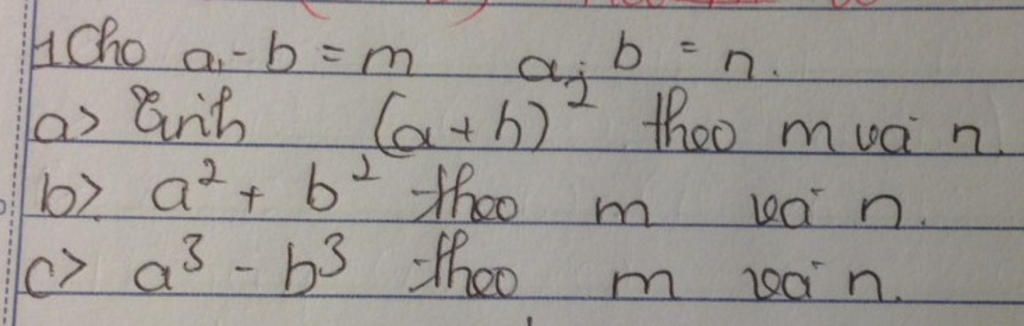 1 Cho a - b = m a . b = n.
a> Tính (a + b)² theo m và n.
b> a² + b² theo m và n.
c> a³ - b³ theo m và n.